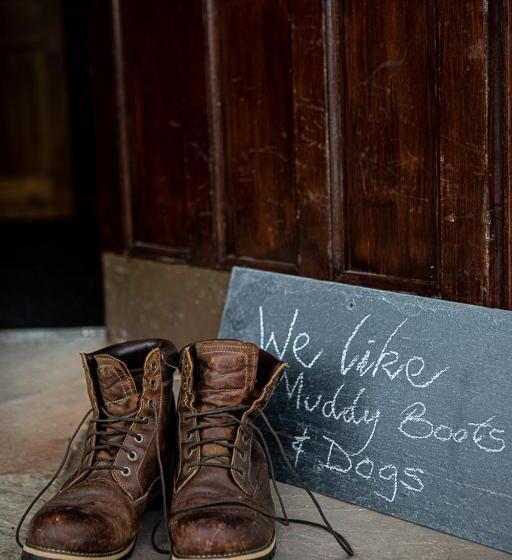 We like
Muddy Boots
& Dogs